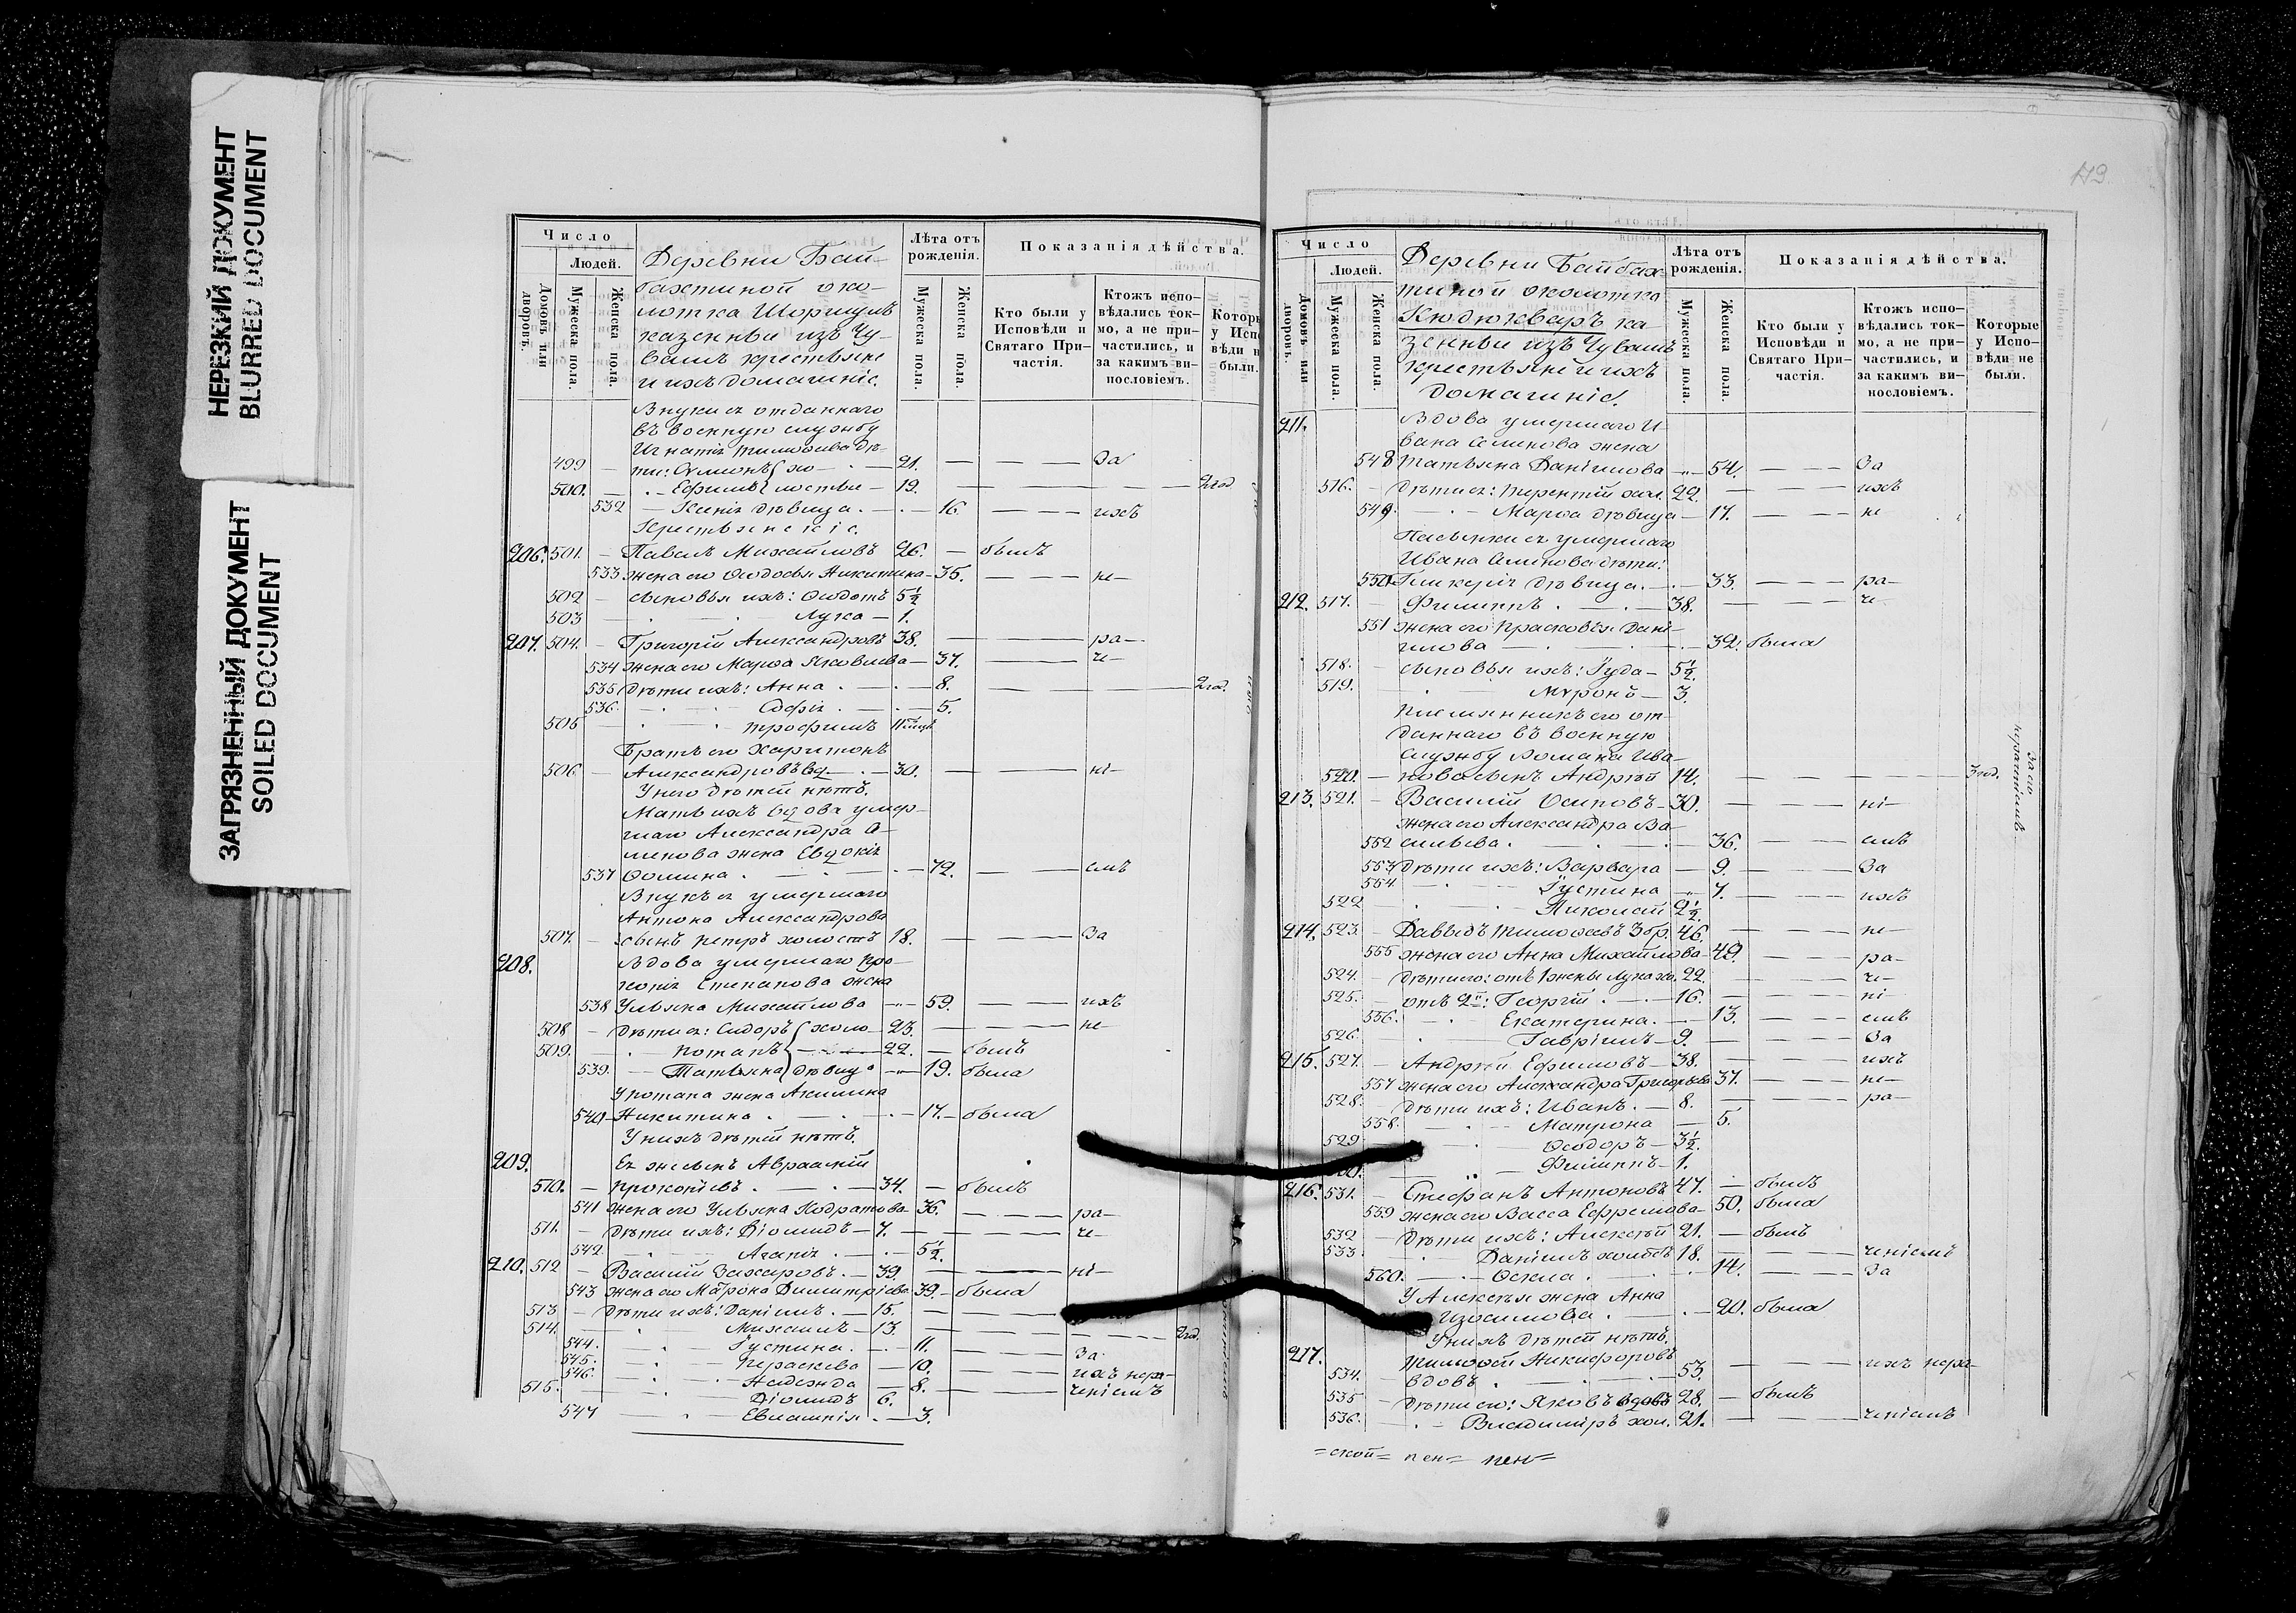 НЕРЕЗКИЙ ДОКУМЕНТ
BLURRED DOCUMENT
ЗАГРЯЗНЕННЫЙ ДОКУМЕНТ
SOILED DOCUMENT
Число
Людей.
Домовъ или дворовъ.
Мужеска пола.
Женска пола.
Деревни Бай-
бахтиной око-
лотка
казенные изъ Чу-
вашъ крестьяне
и ихъ домашніе.
Лѣта отъ рожденія.
Мужеска пола.
Женска пола.
Показанія дѣйства.
Кто были у Исповѣди и Святаго При-частія.
Ктожъ испо-вѣдались ток-мо, а не при-частились, и за какимъ ви-нословіемъ.
Которы у Испо вѣди н были.
Внуки ея отданнаго
въ военную службу
Игнатія Тимоѳеева дѣ-
499 — ти: хо- — 21. — За
500. — Ефимъ лостые — 19. — 2 год
532 — Ксенія дѣвица — 16. — ихъ
Крестьянскіе.
206. 501. — Павелъ Михайловъ 26. — былъ
533 жена его Ѳеодосья Никитина — 35. — не-
502 — сыновья ихъ: Ѳедотъ 5½
503 — Лука — 1.
207. 504. — Григорій Александровъ 38. — ра-
534 жена его Марѳа Яковлева — 37. — че-
535 дѣти ихъ: Анна — 8. — 2 год.
536. — Софія — 5.
505 — Трофимъ 11
Братъ его Харитонъ
506. — Александровъ вд. — 30. — ні-
У него дѣтей нѣтъ.
Мать ихъ вдова умер-
шаго Александра Се-
менова жена Евдокія
537 Ѳомина — 72. — емъ
Внукъ ея умершаго
Антона Александрова
507. — сынъ Петръ холостъ 18. — За
208. Вдова умершаго Про-
копія Степанова жена
538 Ульяна Михайлова — 59. — ихъ
508. — дѣти ея: Сидоръ холо- 23. — не-
509. — Потапъ 22. — былъ
539. — Татьяна дѣвица — 19. была
У Потапа жена Акилина
540 Никитина — 17. — была
У нихъ дѣтей нѣтъ.
209. Ея же сынъ Авраамій
510. — Прокопьевъ — 34. — былъ
541 жена его Ульяна Кодратова — 36. — ра-
511. — дѣти ихъ: Діомидъ — 7. — че-
542. — Агапія — 5½.
210. 512 — Василій Захаровъ — 39. — ні-
543 жена его Матрона Димитріева 39. — была
513 — дѣти ихъ: Даніилъ — 15.
514. — Михаилъ — 13. — 2 год.
544. — Іустина — 11. — За
545. — Параскева — 10. — ихъ нера-
546. — Надежда — 8. — ченіемъ
515. — Діомидъ 6.
547 — Евлампія — 3.
Число
Людей.
Домовъ или дворовъ.
Мужеска пола.
Женска пола.
Деревни Байбах-
тиной околотка
Кюдюкваръ ка-
зенные изъ Чувашъ
крестьяне и ихъ
домашніе.
Лѣта отъ рожденія.
Мужеска пола.
Женска пола.
Показанія дѣйства.
Кто были у Исповѣди и Святаго При-частія.
Ктожъ испо-вѣдались ток-мо, а не при-частились, и за какимъ ви-нословіемъ.
Которые у Испо-вѣди не были.
211. Вдова умершаго И-
вана Семенова жена
548 Татьяна Даніилова — 54. — За
516. — дѣти ея: Терентій хол. 22. — ихъ
549. — Марѳа дѣвица — 17. — не
Пасынки ея умершаго
Ивана Семенова дѣти:
550 Гликерія дѣвица — 33. — ра-
212. 517. — Филиппъ — 38. — че-
551 жена его Прасковья Дані-
илова — 32. была
518. — сыновья ихъ: Іуда — 5½.
519. — Мѵронъ — 3.
Племянникъ его от-
даннаго въ военную
службу Романа Ива-
520. — нова сынъ Андрей 14. — 3 год.
за его нераченіемъ
213. 521. — Василій Осиповъ — 30. — ні-
жена его Александра Ва-
552 сильева — 36. — емъ
553 дѣти ихъ: Варвара — 9. — За
554. — Іустина — 7. — ихъ
522 — Николай 2½.
214. 523. — Давыдъ Тимоѳеевъ 3 бр. 46. — не-
555 жена его Анна Михайлова — 49. — ра-
524. — дѣти его: отъ 1 жены Лука хо. 22. — че-
525. — отъ 2й: Георгій — 16. — ні-
556. — Екатерина — 13. — емъ
526. — Гавріилъ — 9. — За
215. 527. — Андрей Ефимовъ — 38. — ихъ
557 жена его Александра Григорьева 37. — не-
528. — дѣти ихъ: Иванъ — 8. — ра-
558. — Матрона — 5.
529 — Ѳеодоръ — 3½.
Филиппъ — 1.
216. 531. — Стефанъ Антоновъ 47. — былъ
559 жена его Васса Ефремова — 50. была
532 — дѣти ихъ: Алексѣй 21. — былъ
533 — Даніилъ холостъ 18. — ченіемъ
560. — Ѳекла — 14. — За
У Алексѣя жена Анна
Изосимова — 20. была
У нихъ дѣтей нѣтъ.
217. Тимоѳей Никифоровъ
534. — вдовъ — 53. — ихъ нера-
535 — дѣти его: Яковъ вдовъ 28. — былъ
536. — Владиміръ хол. 21. — ченіемъ
=ской= пен= пен=